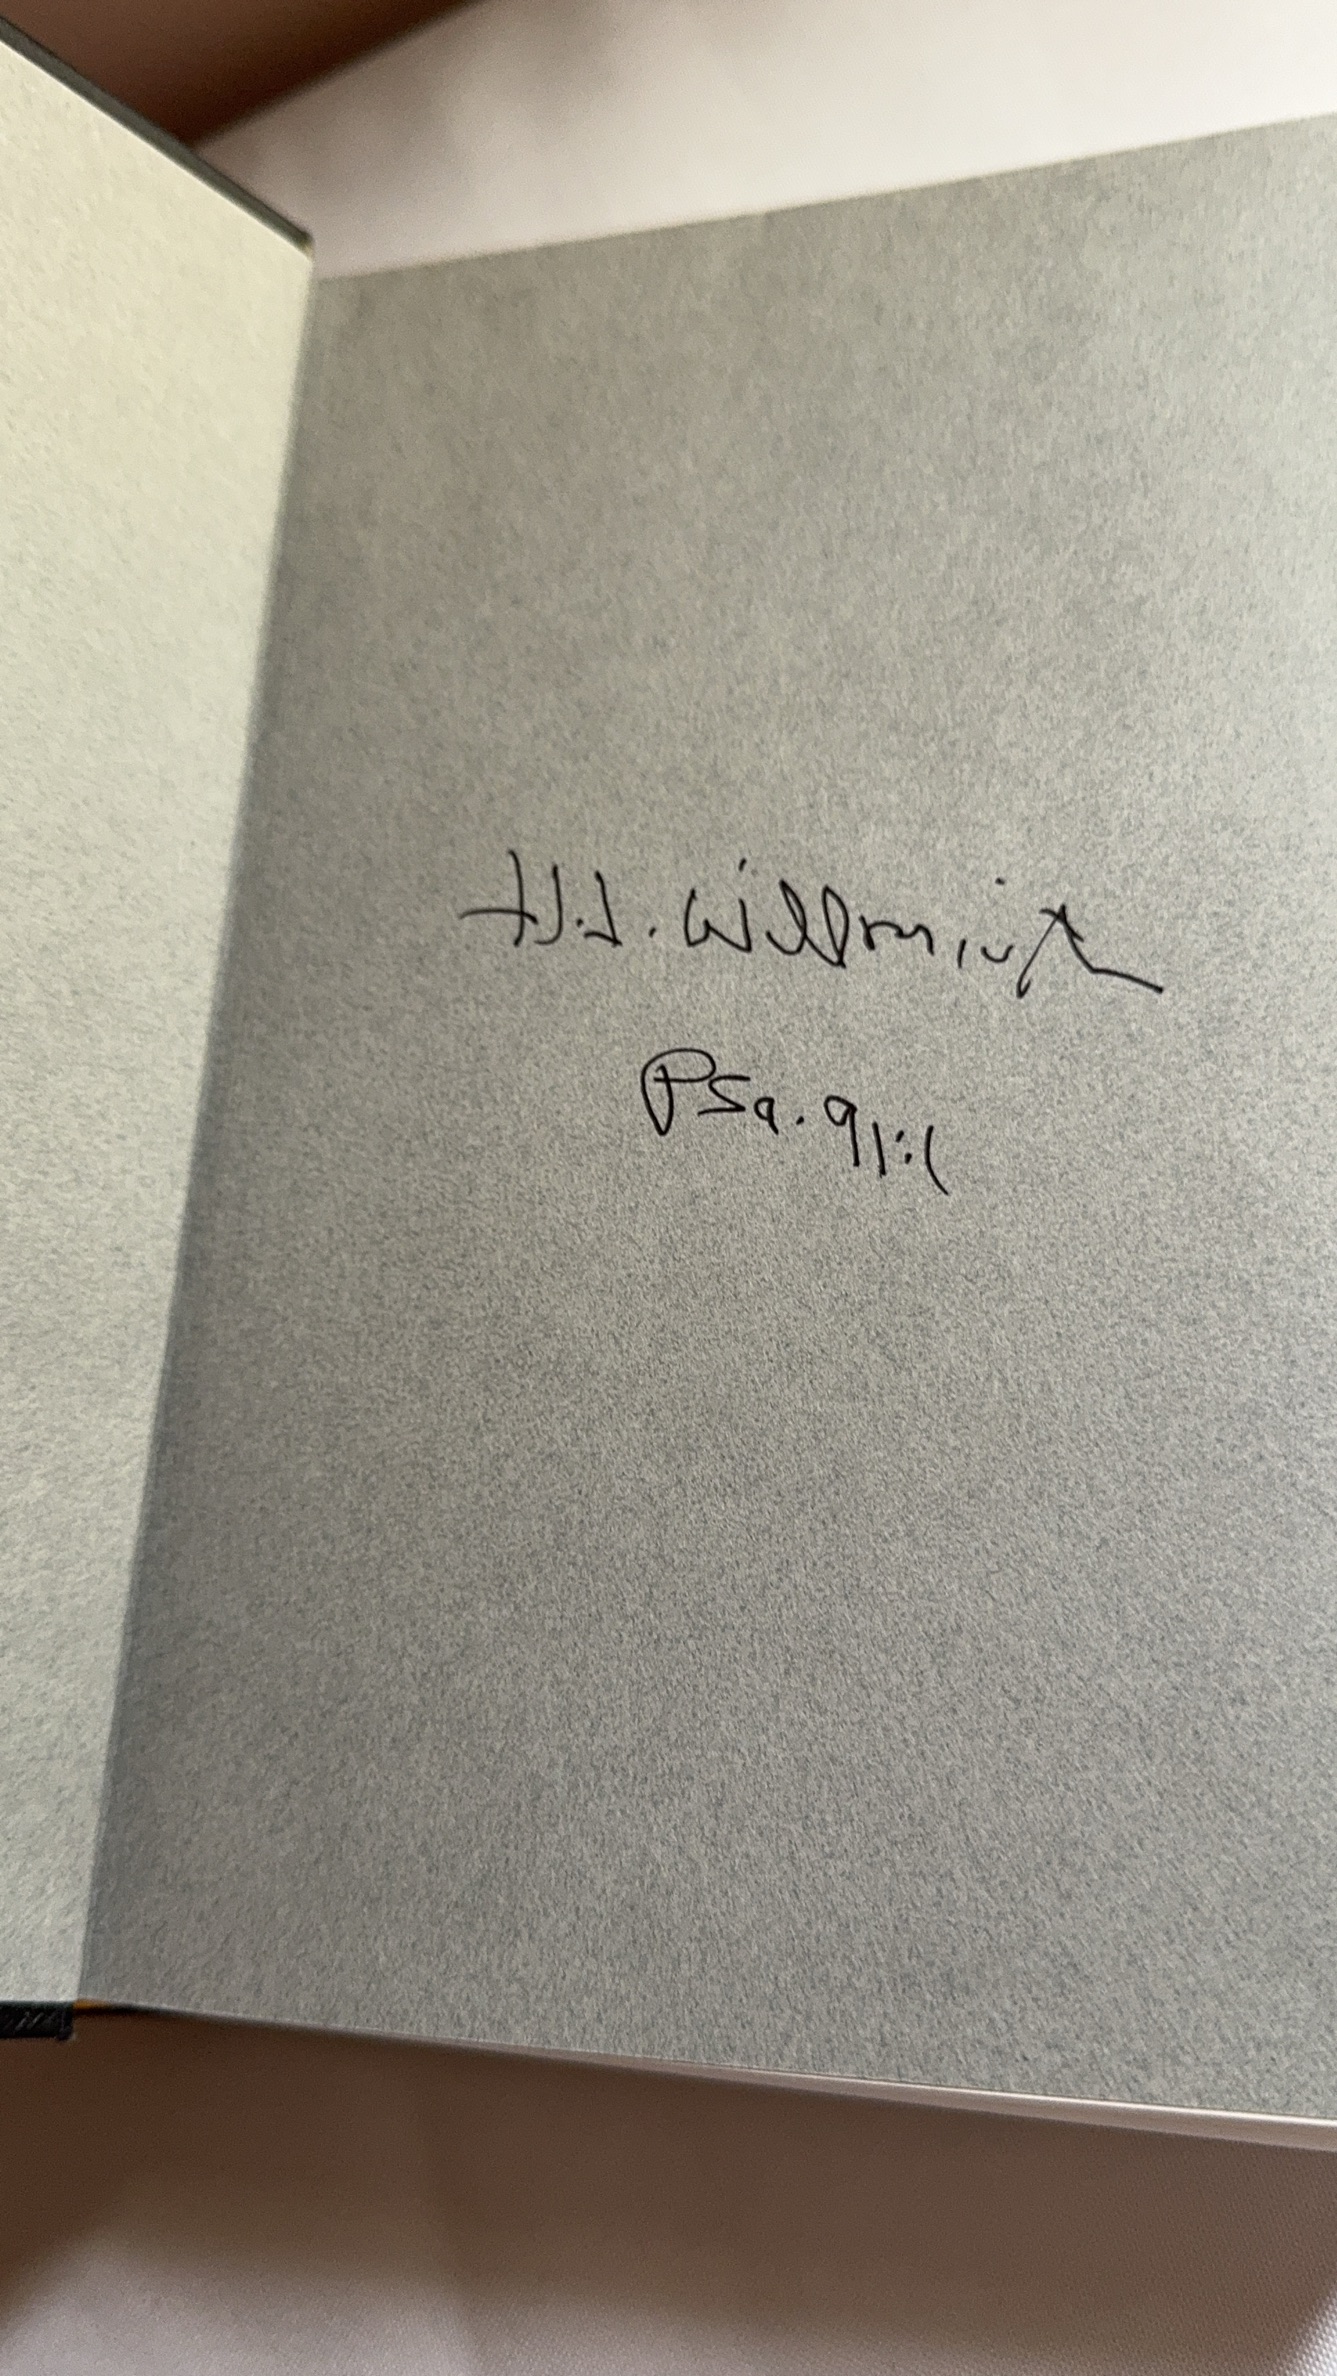 H.L. Willmington
Psa. 91:1